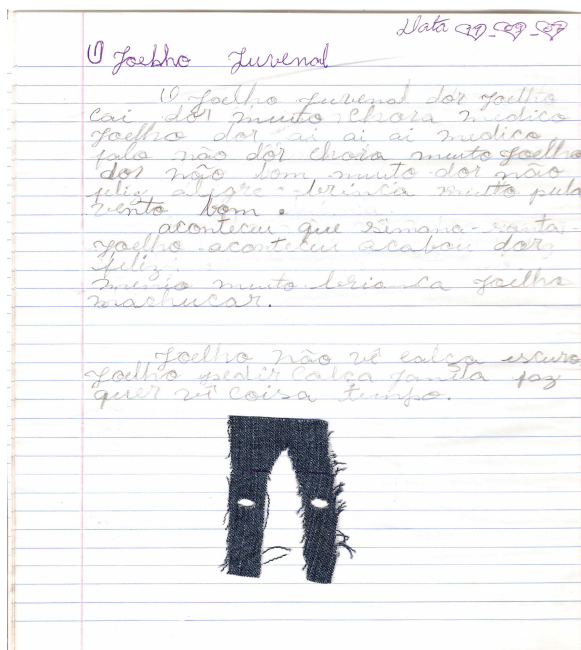 Data 19-09-07
O Joelho Juvenal
O Joelho Juvenal dor joelho
cai dor muito chora medico
Joelho dor ai ai ai medico
falo não dor chora muito Joelho
dor não bom muito dor não
feliz alegre brinca muito pula
vento bom.
aconteceu que semana-santa-
Joelho aconteceu acabou dor
feliz
muito
machucar.
Joelho não vê calça escuro
Joelho pedir calça janela faz
quer vê coisa tempo.